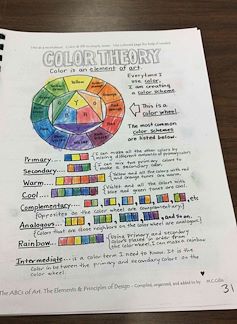 COLOR THEORY
Color is an element of art.
Everytime I
use color,
I am creating
a color scheme.
This is a
color wheel.
The most
common color
schemes
are listed below.
Y
O
G
Primary...
{I can make all the other colors by
mixing different amounts of primary colors
Secondary...
{I can mix two primary colors to
make a secondary color.
Warm....
{Yellow and all the colors with red
and orange tones are warm.
Cool....
{Violet and all the colors with
blue and green tones are cool.
Complementary....
etc
{Opposites on the color wheel are complementary.}
Analogous...
and so on.
{Colors that are close neighbors on the color wheel are analogous.}
Rainbow...
{Using primary and secondary
colors placed in order from
the color wheel, I can make a rainbow
Intermediate... is a color term I need to know. It is the
color in between the primary and secondary colors on the
color wheel.
The ABCs of Art. The Elements & Principles of Design - Compiled, organized, and added to by M.C.Gillis
31